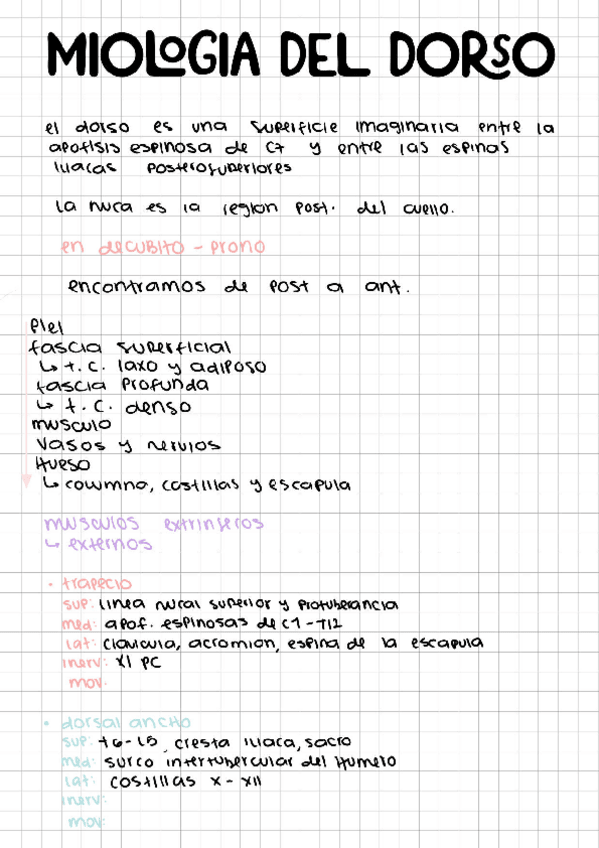 MIOLOGIA DEL DORSO
el dorso es una superficie imaginaria entre la
apofisis espinosa de C7 y entre las espinas
iliacas posterosuperiores
la nuca es la region post. del cuello.
en decubito - prono
encontramos de post a ant.
Piel
fascia superficial
↳ t.c. laxo y adiposo
fascia profunda
↳ t.c. denso
musculo
vasos y nervios
Hueso
↳ columna, costillas y escapula
musculos extrinsecos
↳ externos
• trapecio
sup: linea nucal superior y protuberancia
med: apof. espinosas de C1-T12
lat: clavicula, acromion, espina de la escapula
inerv: XI PC
mov:
• dorsal ancho
sup: t6-L5, cresta iliaca, sacro
med: surco intertubercular del Humero
lat: costillas X-XII
inerv:
mov: